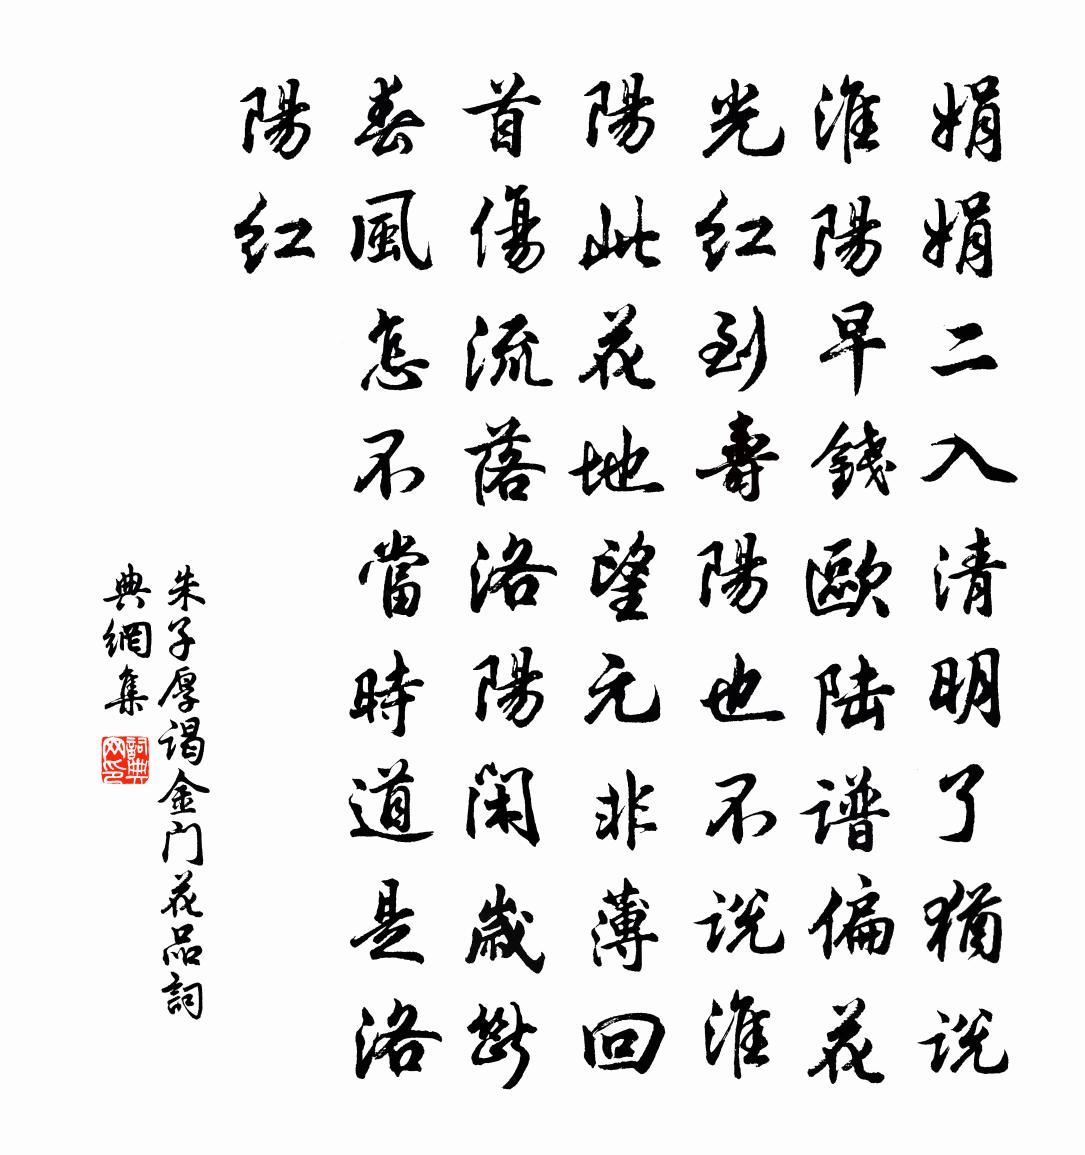 娟娟二入清明了猶说
淮陽早錢歐陆谱偏花
光红到壽陽也不说淮
陽此花地望元非薄回
首傷流落洛陽闲歲斷
春風怎不當時道是洛
陽红
朱子厚谒金门花品詞
典網集
詞典网印